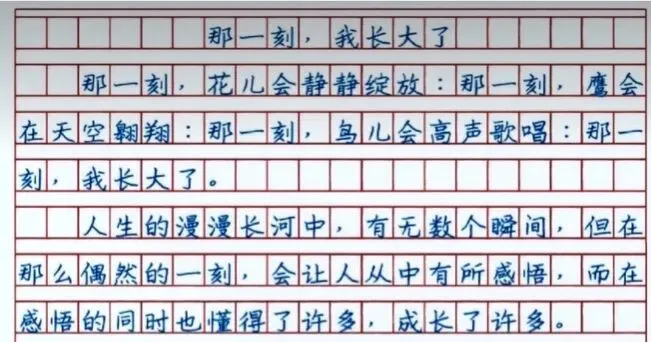 那一刻，我长大了
那一刻，花儿会静静绽放：那一刻，鹰会
在天空翱翔：那一刻，鸟儿会高声歌唱：那一
刻，我长大了。
人生的漫漫长河中，有无数个瞬间，但在
那么偶然的一刻，会让人从中有所感悟，而在
感悟的同时也懂得了许多，成长了许多。